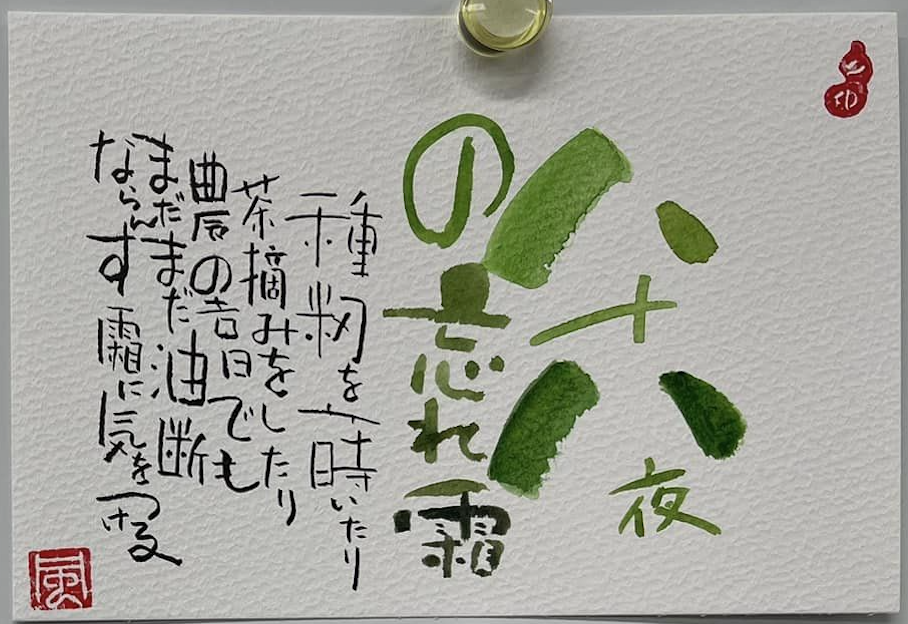 八十八夜
の忘れ霜
種籾を蒔いたり
茶摘みをしたり
農の吉日でも
まだまだ油断
ならんす霜に気をつける
風